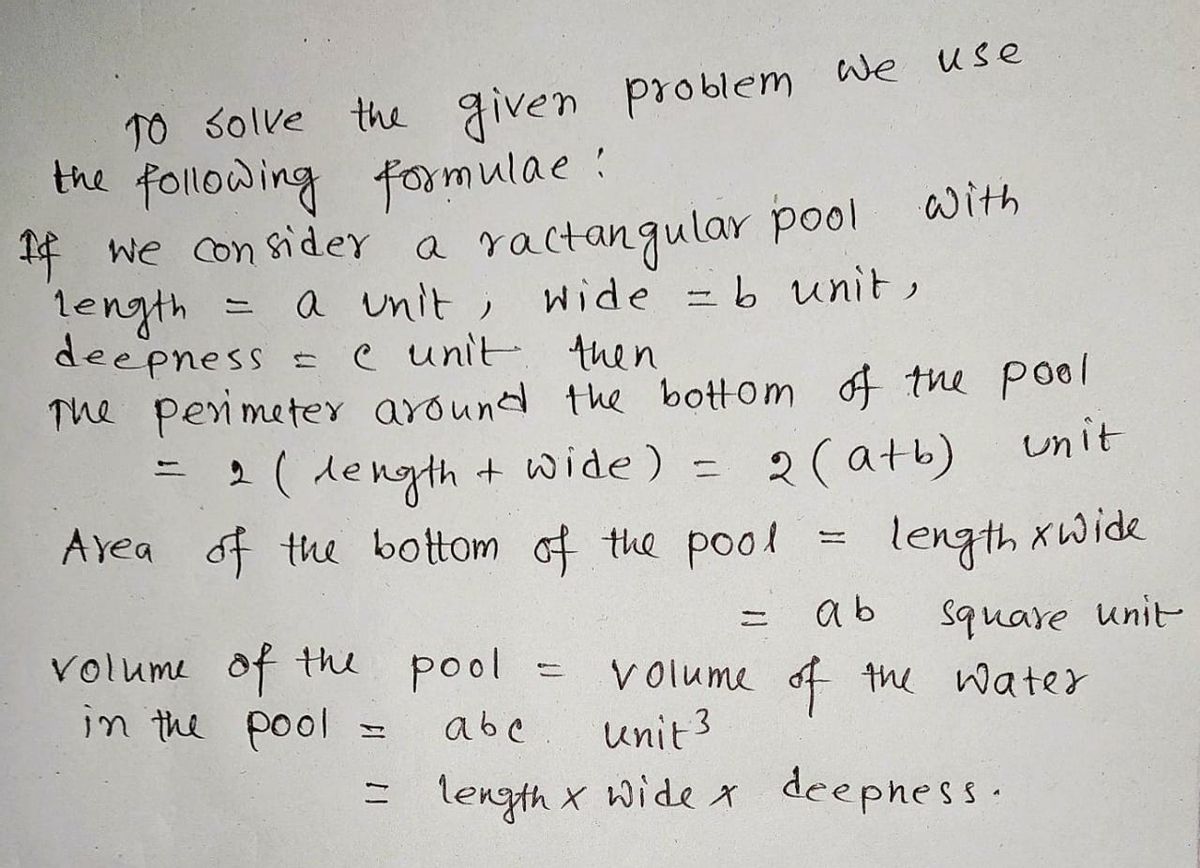 To solve the given problem we use
the following formulae :
If we consider a ractangular pool with
length = a unit , wide = b unit ,
deepness = c unit then
The perimeter around the bottom of the pool
= 2 ( length + wide ) = 2 ( a+b ) unit
Area of the bottom of the pool = length x wide
= ab square unit
volume of the pool = volume of the water
in the pool = abc unit³
= length x wide x deepness .